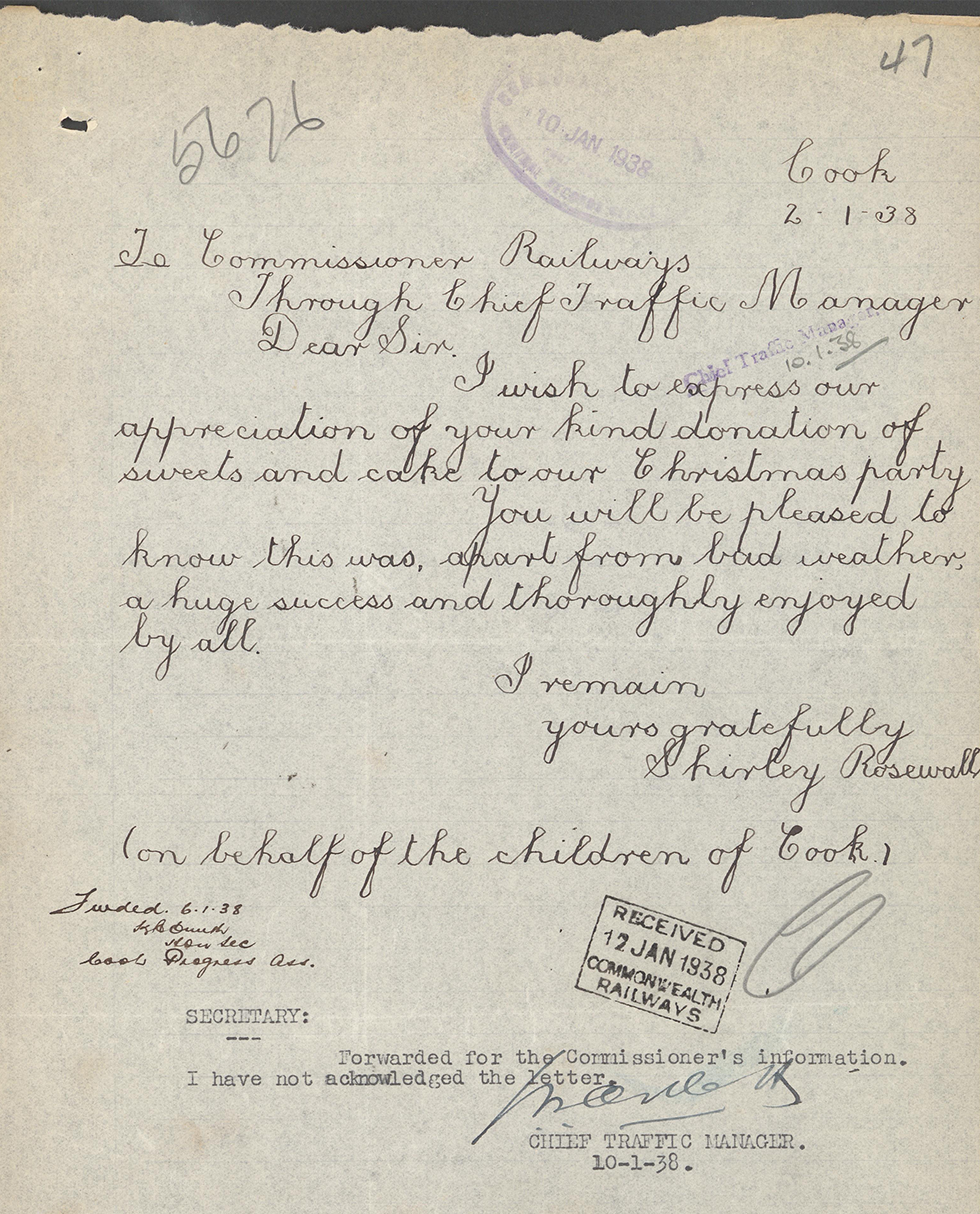 47
5676
10 JAN 1938
Cook
2-1-38
To Commissioner Railways
Through Chief Traffic Manager
Dear Sir.
Chief Traffic Manager.
10.1.38
I wish to express our
appreciation of your kind donation of
sweets and cake to our Christmas party
You will be pleased to
know this was, apart from bad weather,
a huge success and thoroughly enjoyed
by all.
I remain
yours gratefully
Shirley Rosewall
(on behalf of the children of Cook.)
Fwded. 6.1.38
Hon Sec
Cook Progress Ass.
RECEIVED
12 JAN 1938
COMMONWEALTH
RAILWAYS
SECRETARY:
---
Forwarded for the Commissioner's information.
I have not acknowledged the letter.
CHIEF TRAFFIC MANAGER.
10-1-38.